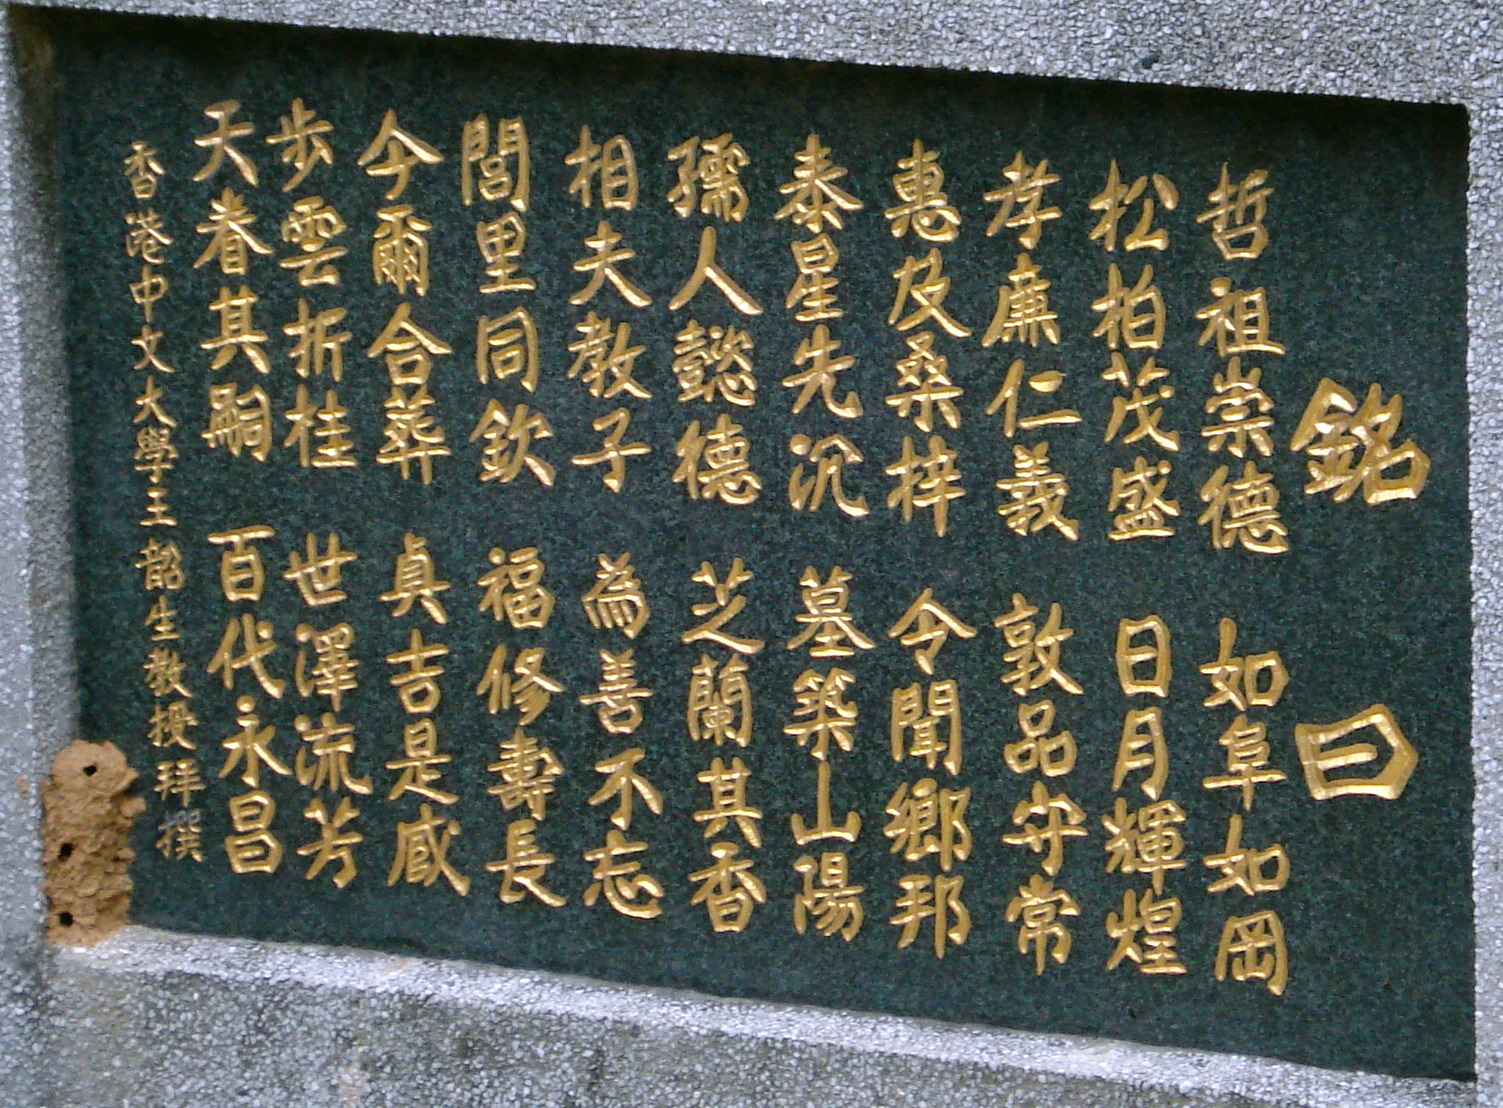 銘曰
哲祖崇德 如阜如岡
松柏茂盛 日月輝煌
孝廉仁義 敦品守常
惠及桑梓 令聞鄉邦
泰星先沉 墓築山陽
孺人懿德 芝蘭其香
相夫教子 為善不忘
閭里同欽 福修壽長
今爾合葬 真吉是宬
步雲折桂 世澤流芳
天眷其嗣 百代永昌
香港中文大學王韶生教授拜撰